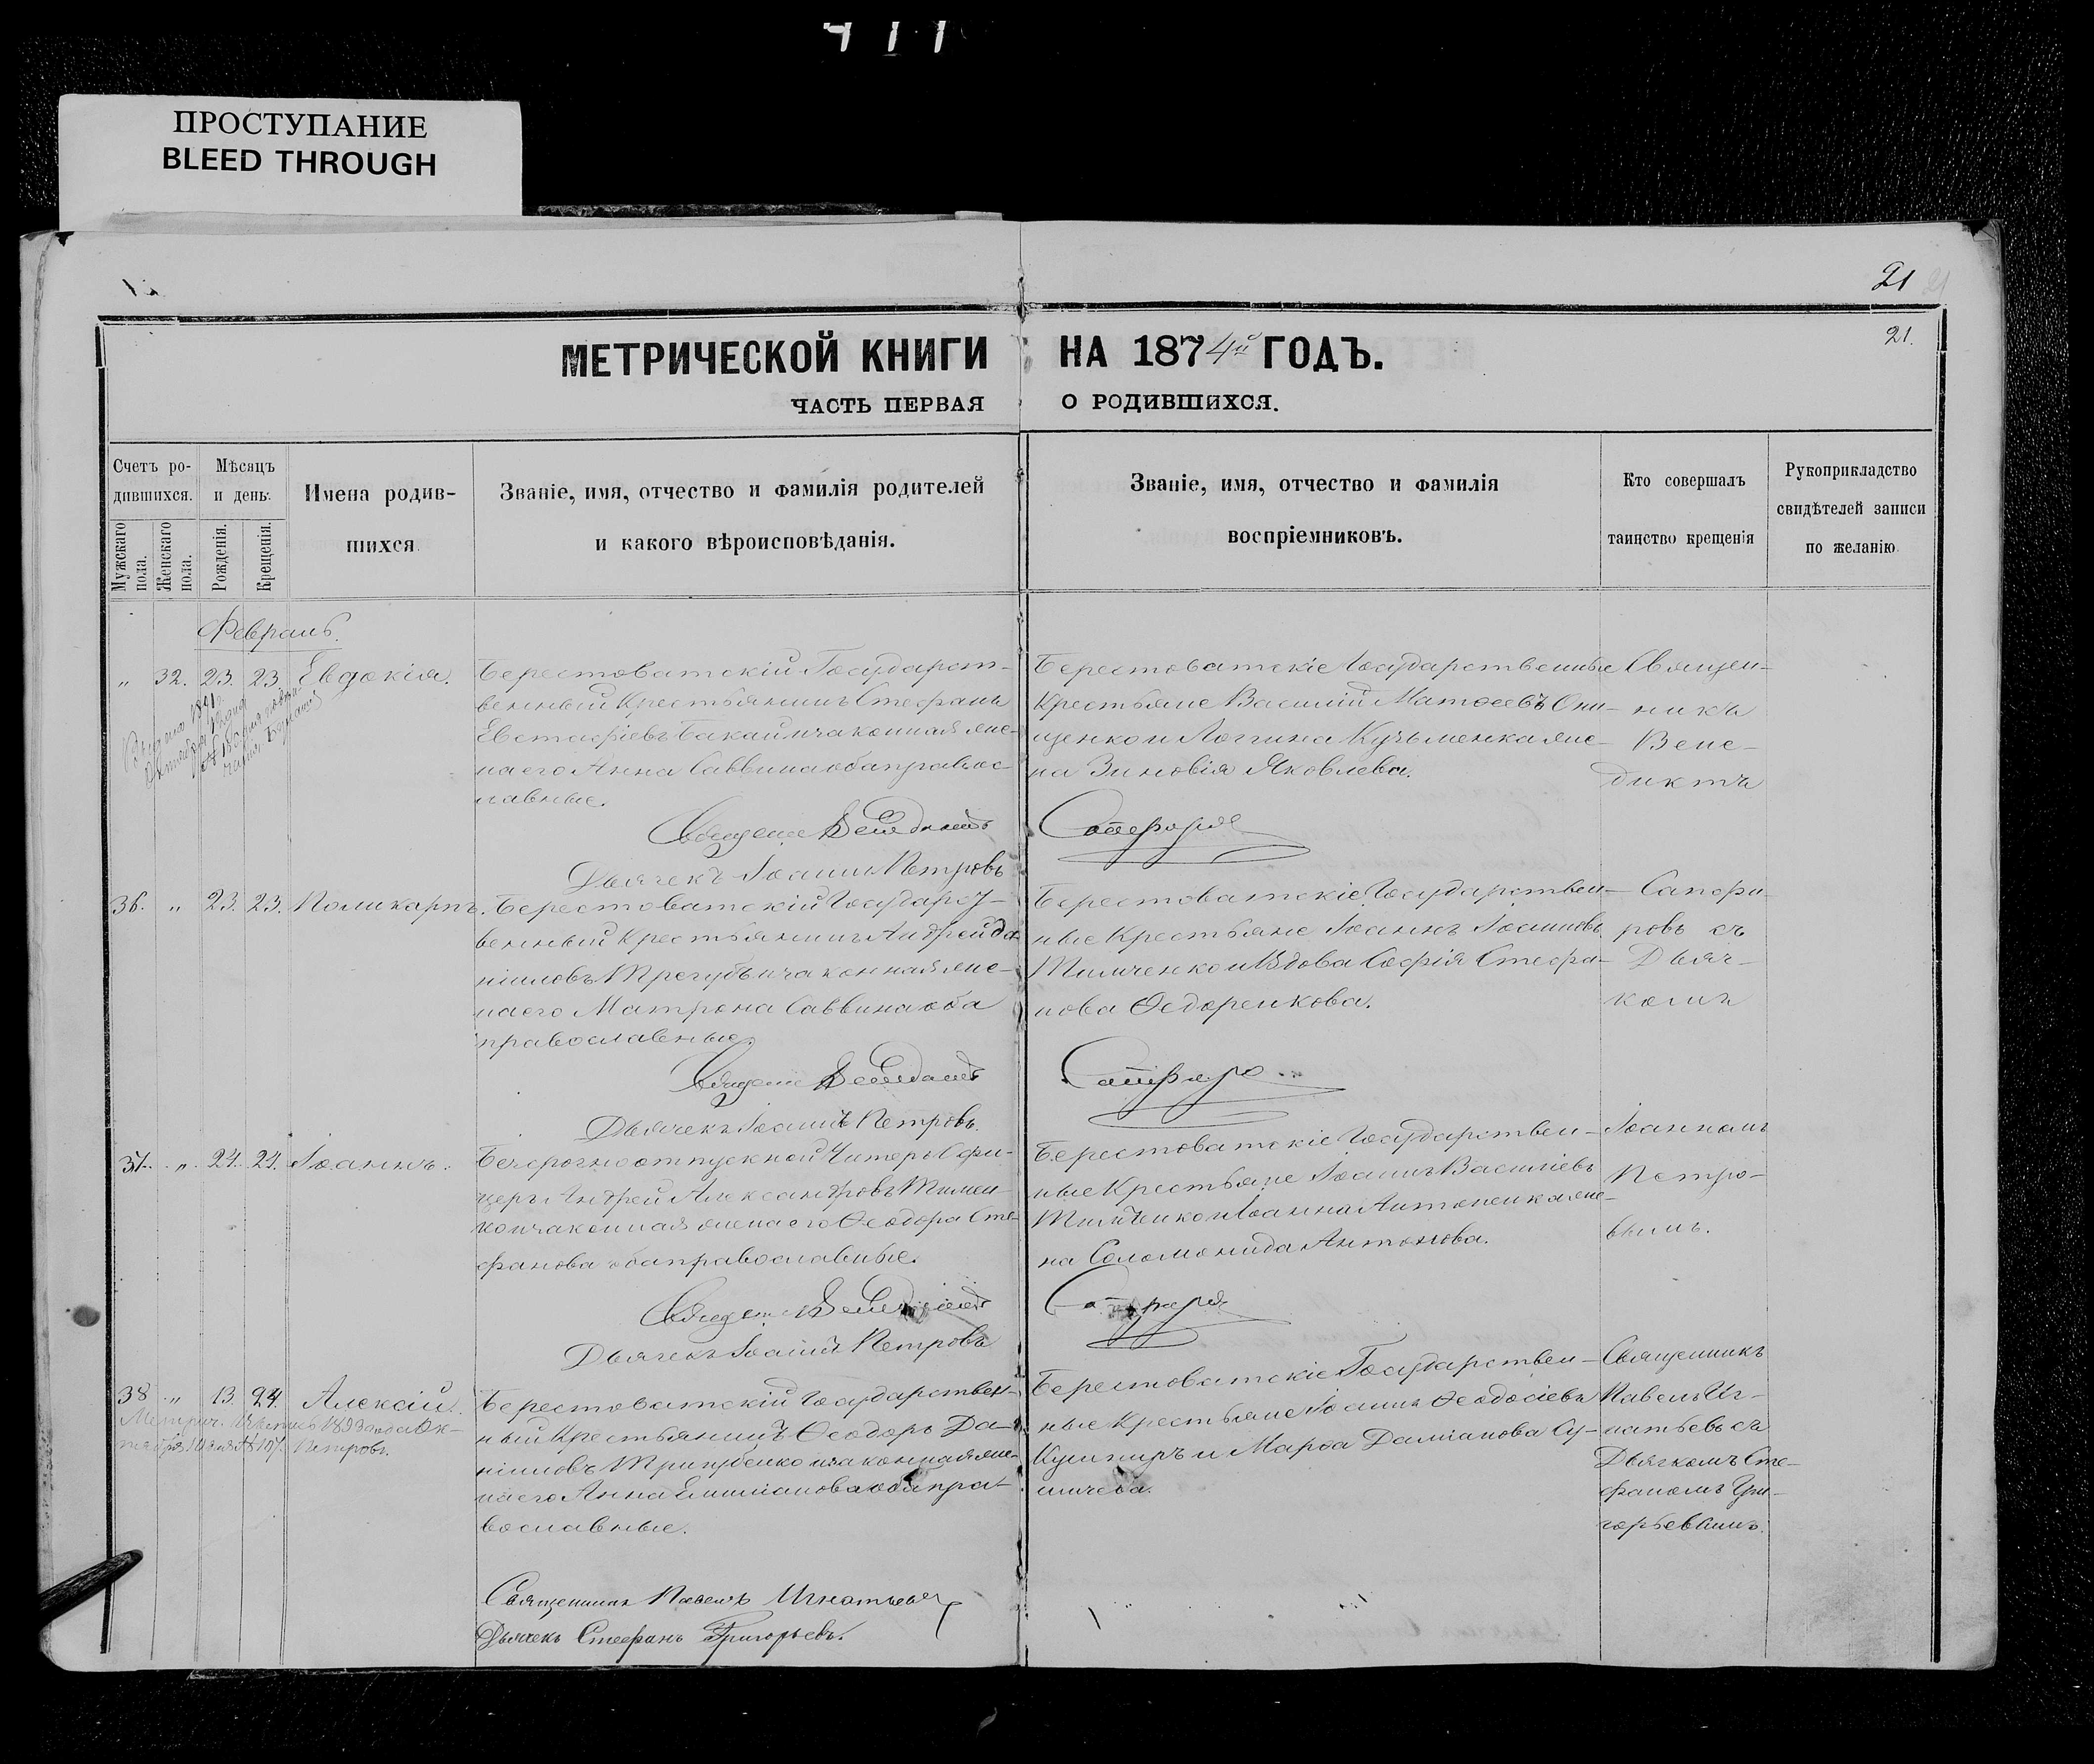 411
ПРОСТУПАНИЕ
BLEED THROUGH
21 21
21.
МЕТРИЧЕСКОЙ КНИГИ НА 1874й ГОДЪ.
ЧАСТЬ ПЕРВАЯ О РОДИВШИХСЯ.
Счетъ ро-
дившихся.
Мужскаго пола.
Женскаго пола.
Мѣсяцъ
и день.
Рожденія.
Крещенія.
Имена родив-
шихся
Званіе, имя, отчество и фамилія родителей
и какого вѣроисповѣданія.
Званіе, имя, отчество и фамилія
воспріемниковъ.
Кто совершалъ
таинство крещенія
Рукоприкладство
свидѣтелей записи
по желанію
Февраль.
„ 32. 23. 23. Евдокія.
Берестоватскій Государст-
венный Крестьянинъ Стефанъ
Евстафіевъ Бакай и законная же-
на его Анна Саввина оба правос-
лавные.
Дьячекъ Іоаннъ Петровъ
Берестоватскіе Государственные
Крестьяне Василій Матѳеевъ Они-
щенко и Логгина Кузьменка же-
на Зиновія Яковлева.
Священ-
никъ
Вене-
диктъ
36. „ 23. 23. Поликарпъ.
Берестоватскій Государст-
венный Крестьянинъ Андрей Да-
ніиловъ Трегубъ и законная же-
на его Матрона Саввина оба
православные.
Дьячекъ Іоаннъ Петровъ.
Берестоватскіе Государствен-
ные Крестьяне Іоаннъ Іоанновъ
Тимченко и Вдова Софія Стефа-
нова Ѳедоренкова.
Сапфи-
ровъ съ
Дьяч-
комъ
37. „ 24. 24. Іоаннъ.
Безсрочноотпускной Унтеръ Офи-
церъ Андрей Александровъ Тимчен-
ко и законная жена его Ѳеодора Сте-
фанова оба православные.
Дьячекъ Іоаннъ Петровъ
Берестоватскіе Государствен-
ные Крестьяне Іоаннъ Василіевъ
Тимченко и Іоанна Антоненка же-
на Соломонида Антонова.
Іоанномъ
Петро-
вымъ.
38 „ 13. 24. Алексій.
Берестоватскій Государствен-
ный Крестьянинъ Ѳеодоръ Да-
ніиловъ Тригубенко и законная же-
на его Анна Емиліанова оба пра-
вославные.
Священникъ Павелъ Игнатьевъ
Дьячекъ Стефанъ Григорьевъ.
Берестоватскіе Государствен-
ные Крестьяне Іоаннъ Ѳеодосіевъ
Кушниръ и Марѳа Даміанова Су-
Священникъ
Павелъ Иг-
натьевъ съ
Дьячкомъ Сте-
фаномъ Гри-
горьевымъ.